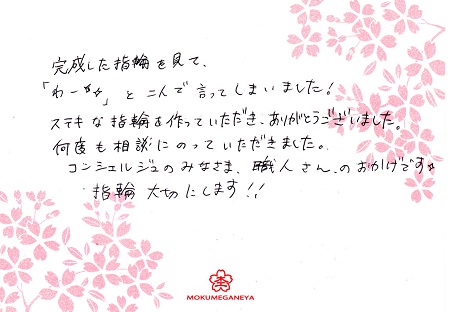 完成した指輪を見て、
「わーぁぁ」と二人で言ってしまいました!
ステキな指輪を作っていただき、ありがとうございました。
何度も相談にのっていただきました。
コンシェルジュのみなさま、職人さん、のおかげです☆
指輪 大切にします!!
MOKUMEGANEYA